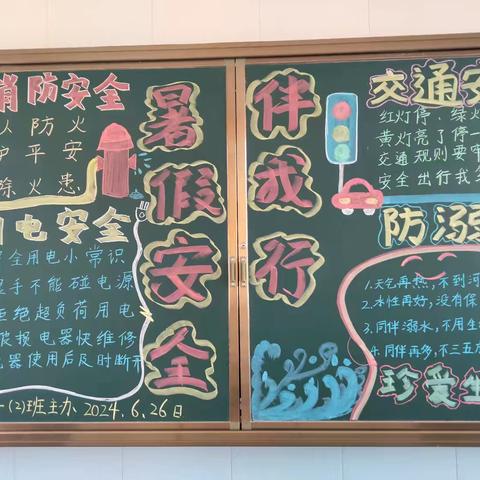 消防安全
人防火
护平安
除火患
用电安全
安全用电小常识
湿手不能碰电源
拒绝超负荷用电
破损电器快维修
电器使用后及时断开
一(2)班主办、2024.6.26日
暑假安全
伴我行
交通安
红灯停、绿火
黄灯亮了停一
交通规则要牢
安全出行我
防溺
1.天气再热,不到河
2.本性再好,没有保
3.同伴溺水,不用生
4.同伴再多,不三五
珍爱生